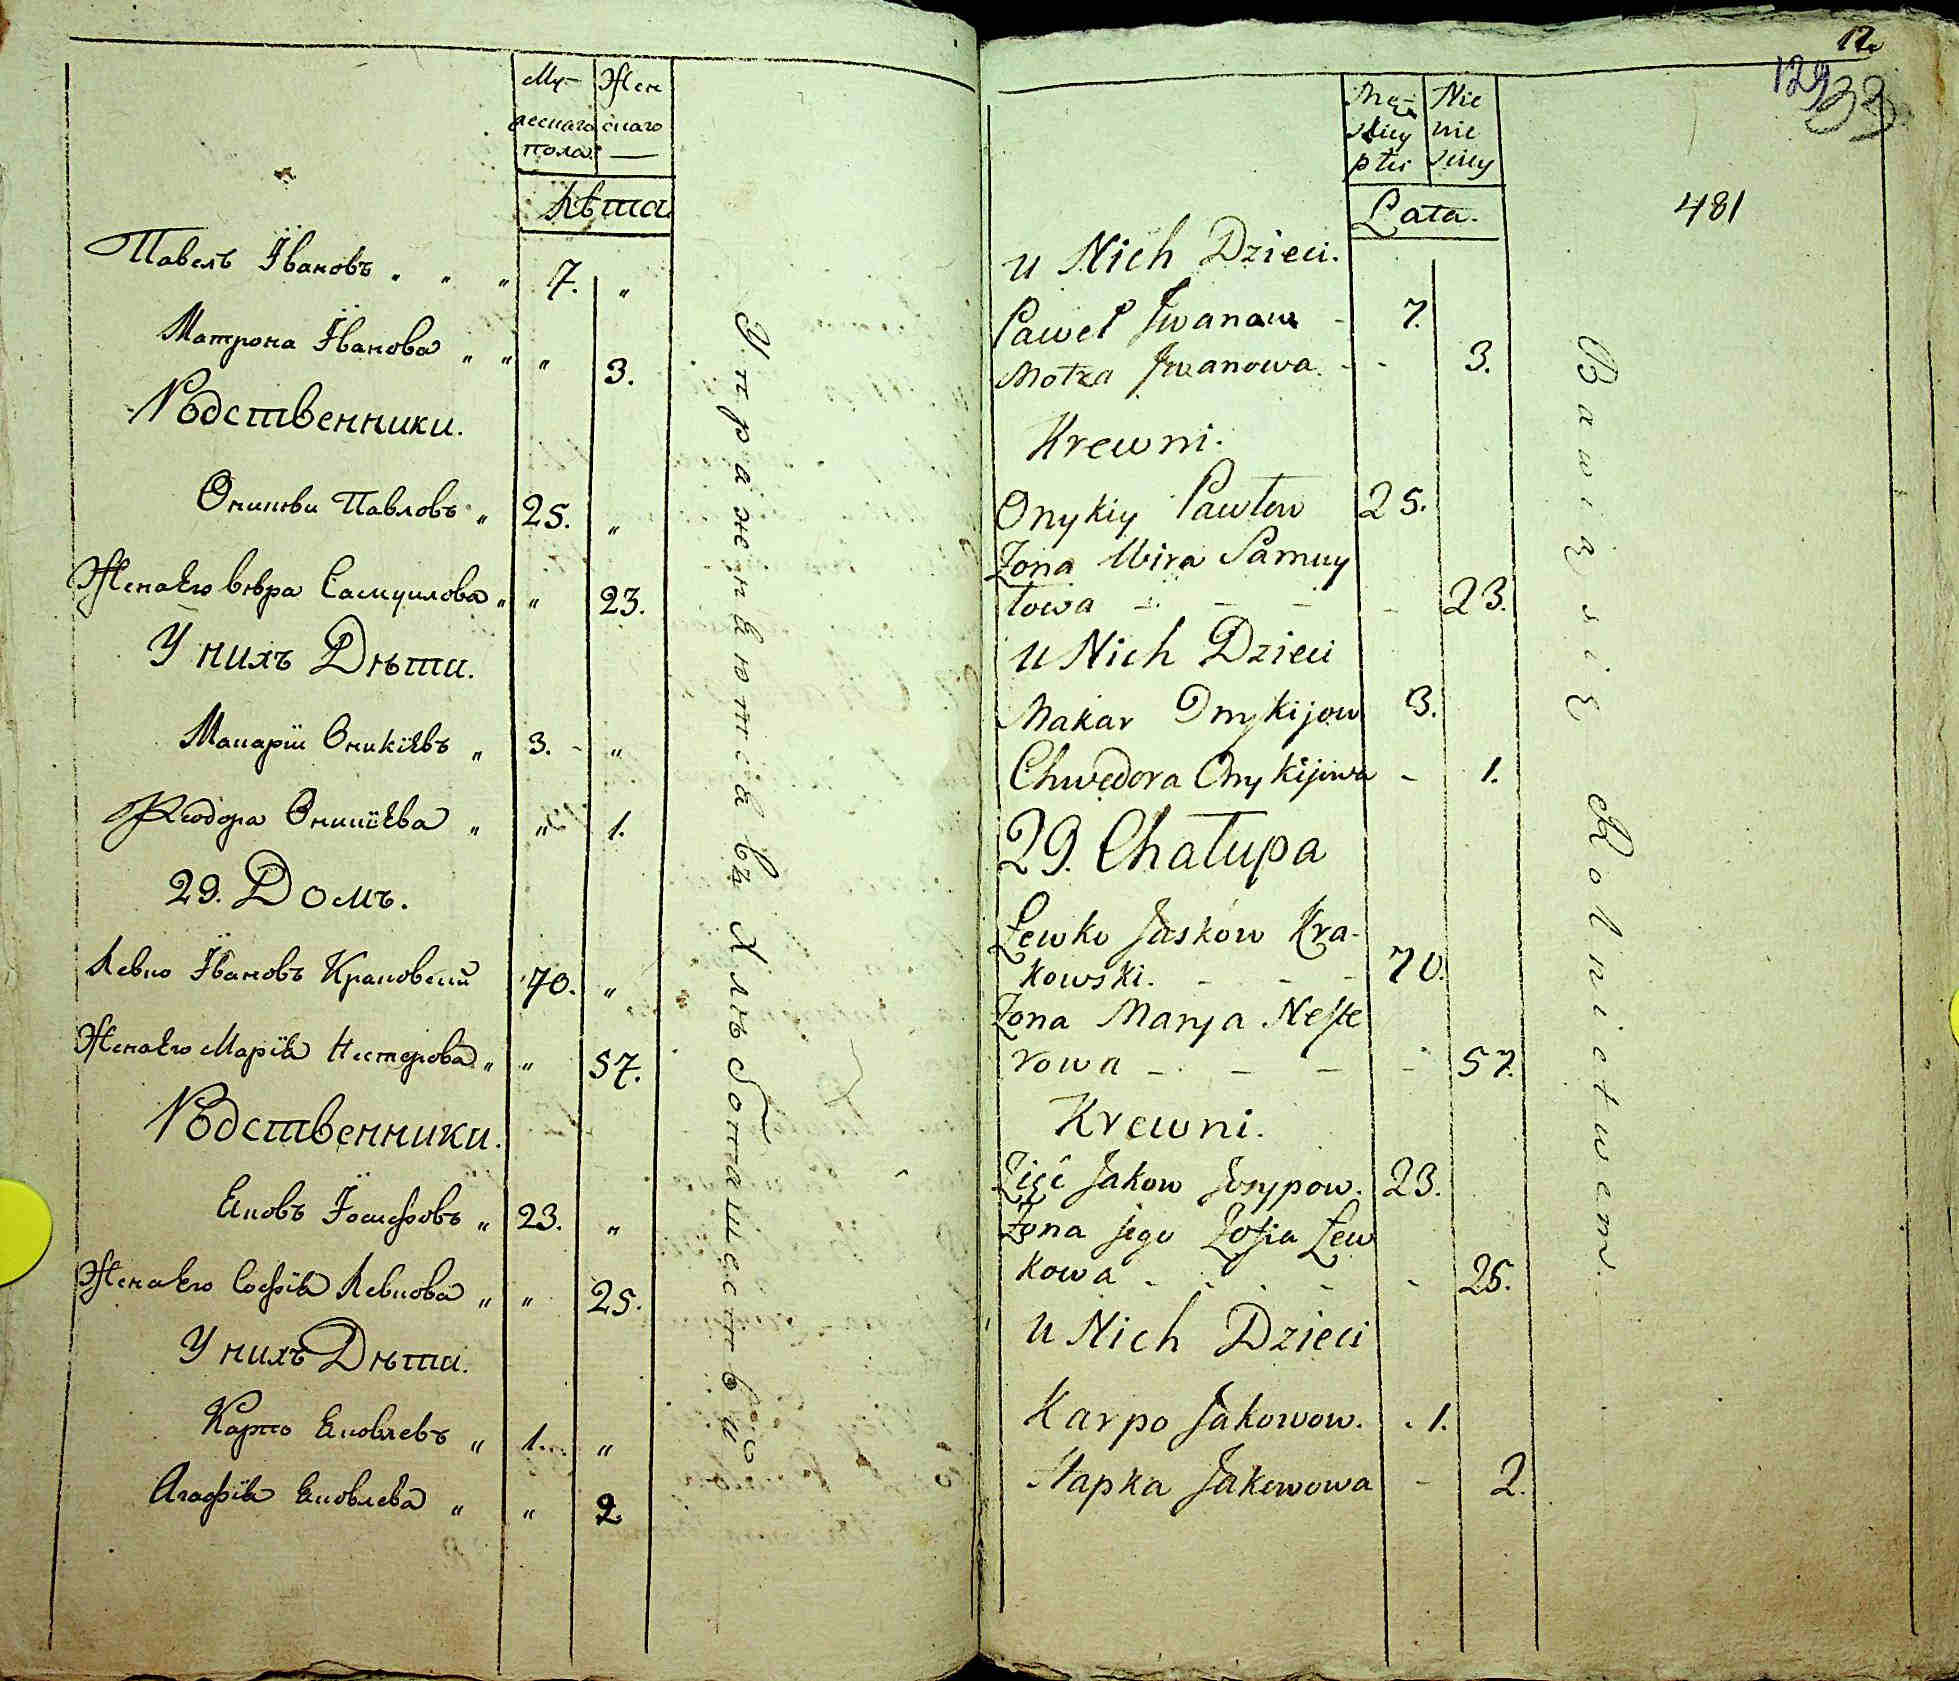 Му-
жескаго
пола.
Жен
скаго
Лѣта.
Павелъ Ївановъ " " " 7. "
Матрона Їванова " " " 3.
Родственники.
Оникѣи Павловъ " 25. "
Жена Его вѣра Самуилова " " 23.
У нихъ Дѣти.
Макарїи Оникїевъ " 3. - "
Ѳеодора Оникїева " " 1.
29. Домъ.
Левко Ївановъ Краковскій 70. "
Жена Его Марїя Нестерова " " 57.
Родственники.
Яковъ Їосифовъ " 23. "
Жена Его Софїя Левкова " " 25.
У нихъ Дѣти.
Карпо Яковлевъ " 1. "
Агафїя Яковлева " " 2
Упражняются въ Хлѣбопашествѣ
12
129
33
481
Mę-
skiey
płci
Nie
wie
sciey
Lata.
u Nich Dzieci.
Paweł Jwanow - 7.
Motra Jwanowa. - - 3.
Krewni.
Onykiy Pawłow 25.
Żona Wira Samuy
łowa - - - - 23.
u Nich Dzieci
Makar Onykijow 3.
Chwedora Onykijowa - 1.
29. Chałupa
Lewko Jaskow Kra-
kowski. - - - 70.
Żona Marya Neste
rowa - - - - 57.
Krewni.
Zięć Jakow Josypow. 23.
Żona jego Zofia Lew
kowa - - - - - 25.
u Nich Dzieci
Karpo Jakowow. - 1.
Hapka Jakowowa - 2.
Bawię się Rolnictwem.